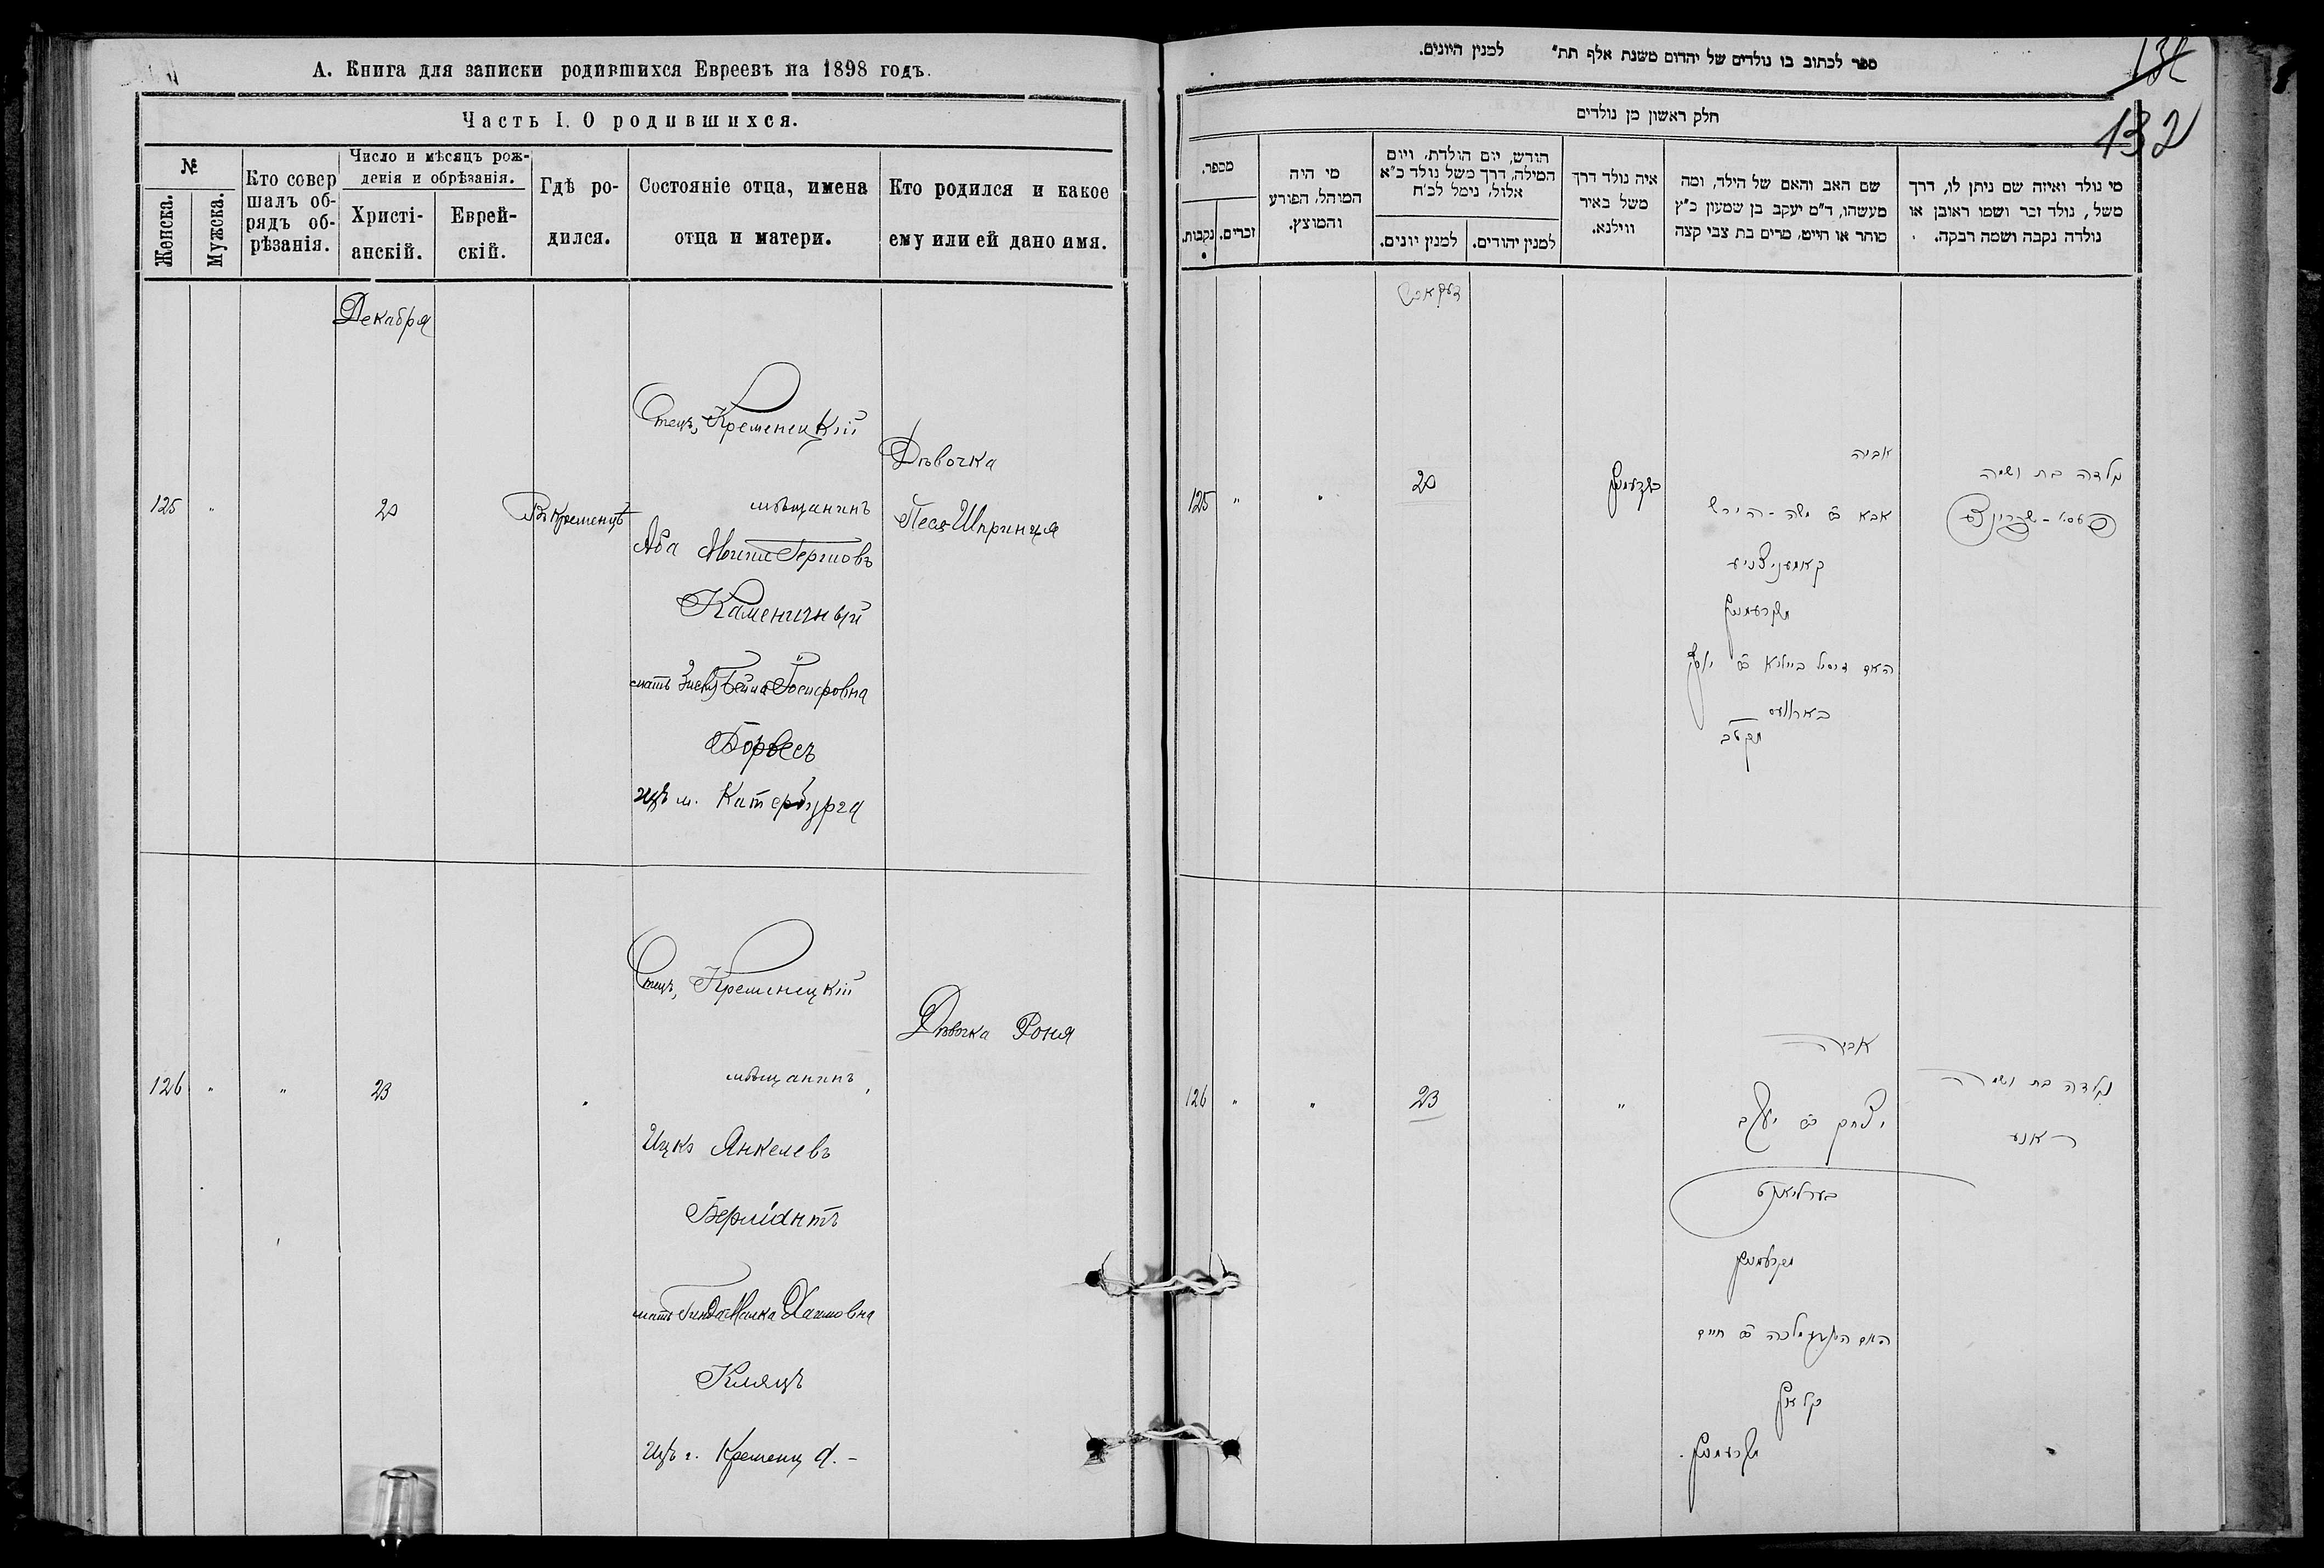 А. Книга для записки родившихся Евреевъ на 1898 годъ.
Часть I. О родившихся.
№
Женска.
Мужска.
Кто совер
шалъ об-
рядъ об-
рѣзанія.
Число и мѣсяцъ рож-
денія и обрѣзанія.
Христі-
анскій.
Еврей-
скій.
Гдѣ ро-
дился.
Состояніе отца, имена
отца и матери.
Кто родился и какое
ему или ей дано имя.
Декабря
125
"
20
Въ Кременцѣ
Отецъ, Кременецкій
мѣщанинъ
Аба Мошко Гершовъ
Каменичный
мать Бейла Іосифовна
изъ м. Катербурга
Дѣвочка
Песя Шпринця
126
"
"
23
"
Отецъ, Кременецкій
мѣщанинъ,
Ицко Янкелевъ
Берліантъ
мать Гинда Малка Хаимовна
Кляцъ
изъ г. Кременца.-
Дѣвочка Роня
ספר לכתוב בו נולדים של יהדום משנת אלף תת" למנין היונים.
132
132
חלק ראשון מן נולדים
מספר.
נקבות.
זכרים.
מי היה
המוהל, הפורע
והמוצץ.
חודש, יום הולדת, ויום
המילה, דרך משל נולד כ"א
אלול, נימל לכ"ח
למנין יונים.
למנין יהודים.
איה נולד דרך
משל באיר
ווילנא.
שם האב והאם של הילד, ומה
מעשהו, ד"מ יעקב בן שמעון כ"ץ
סוחר או חייט, מרים בת צבי קצה
מי נולד ואיזה שם ניתן לו, דרך
משל, נולד זכר ושמו ראובן או
נולדה נקבה ושמה רבקה.
125
"
"
20
אביה
אבא ב"ר משה-הירש
נולדה בת ושמה
126
"
"
23
"
אביה
יצחק ב"ר יעקב
בערליאנט
מקרעמניץ
חיים
קליאץ
מקרעמניץ.
נולדה בת ושמה
ראניע